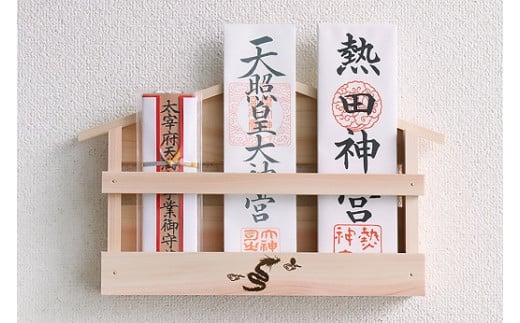 熱田神宮
天照皇大神宮
太宰府天
学業御守